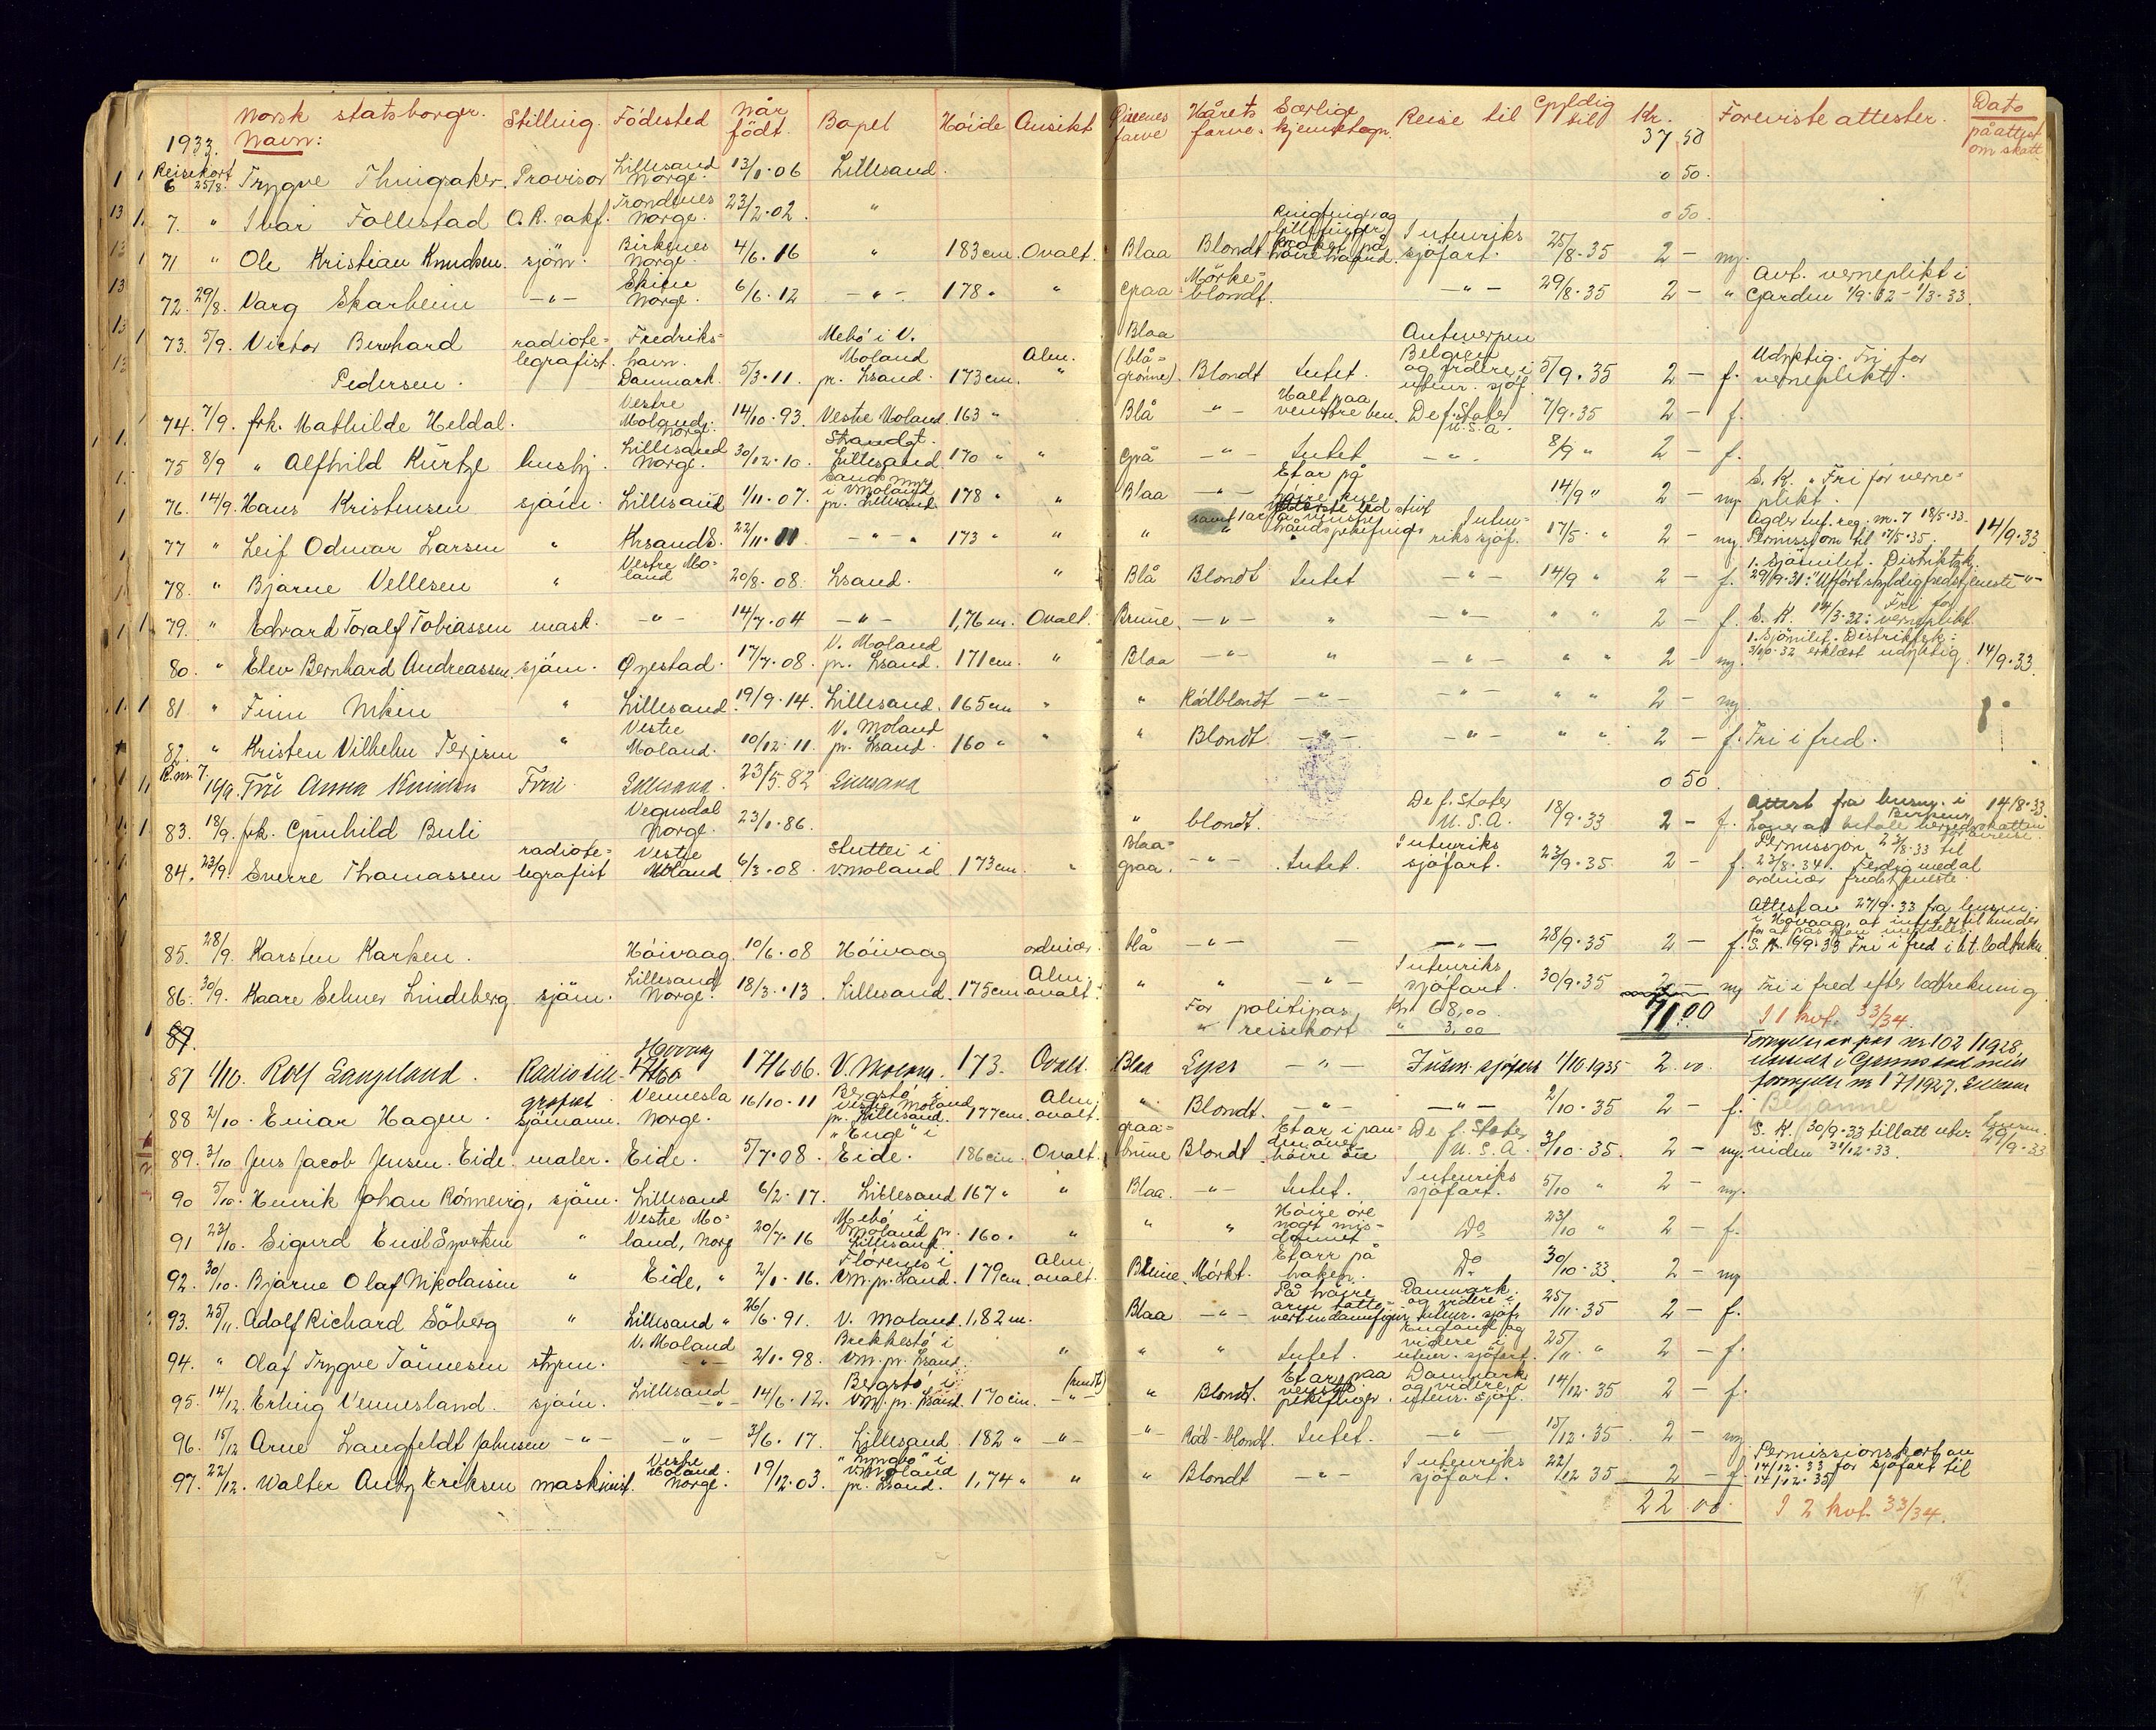 1933. Norsk statsborger. Navn: Stilling. Födested Når födt. Bopel Höide Ansikt Öinenes farve Hårets farve. Særlige kjennetegn. Reise til Gyldig til Kr. Foreviste attester. Dato på attest om skatt
37 50
Reisekort 6 25/8. Trygve Provisor Lillesand Norge. 13/1.06 Lillesand. 0 50.
7. " Ivar Follestad O.R. sakf. Trondenes Norge. 23/2.02. " 0 50.
71 " Ole Kristian Knudsen. sjöm. Birkenes Norge. 4/6.16 " 183 cm. Ovalt. Blaa Blondt Ringfinger og lillefinger på höire haand. I utenriks sjöfart. 25/8.35 2 – ny.
72. 29/8. Varg Skarheim –"– Skien Norge. 6/6.12 –"– 178 " " Graa Mörke=blondt. –"– 29/8.35 2 – " Avt. verneplikt i Garden 1/9.32 – 1/3.33.
73. 5/9. Victor Bernhard Pedersen. radiote=legrafist. Fredriks=havn. Danmark. 5/3.11. Mebö i V. Moland pr. Lsand. 173 cm. Alm. " Blaa (blå=grönne). Blondt Intet. Antwerpen Belgien og videre i utenr. sjöf. 5/9.35 2 – f. Udyktig. Fri for verneplikt.
74. 7/9. frk. Mathilde Heldal. Vestre Moland. Norge. 14/10.93. Vestre Moland. 163 " Blå –"– Halt paa venstre ben. De f. Stater U.S.A. 7/9.35 2 – f.
75 8/9 " Alfhild Kürtze hushj. Lillesand Norge. 30/12.10. Strandgt. Lillesand. 170 " " Grå –"– Intet –"– 8/9 " 2 – f.
76. 14/9. Hans Kristensen sjöm. Lillesand 1/11.07. i V. Moland pr. Lillesand. 178 " " Blaa –"– Et ar på höire 14/9 " 2 – ny. S. K. " Fri for verne=plikt.
77 " Leif Odmar Larsen " Krsand S. 22/11.11 –"– " 173 " " " " samt 1 ar Uten=riks sjöf. 17/5. " 2 – ny. Agder Inf. reg. nr. 7 18/5.33. Permisjon til 17/5.35. 14/9.33
78. " Bjarne Vellesen " Vestre Mo=land 20/8.08. Lsand. " Blå Blondt Intet –"– 14/9 " 2 – f. 1. Sjömilit. Distriktsk. 29/9.31: Utfört skyldig fredstjeneste –"–
79. " Edvard Toralf Tobiassen mask. –"– 14/7.04 –"– 1,76 m. Ovalt. Brune. –"– " –"– " " 2 – f. S. K. 14/3.32: Fri for verneplikt.
80. " Elev Bernhard Andreassen. sjöm. Öyestad. 17/7.08. V. Moland pr. Lsand. 171 cm. " Blaa –"– " –"– " " 2 – ny. 1. Sjömilit. Distriktsk: 3/10.32 erklært udyktig. 14/9.33.
81 " Finn " Lillesand. 19/9.14. Lillesand. 165 cm " " Rödblondt –"– –"– " " 2 – ny.
82. " Kristen Vilhelm Terjesen " Vestre Moland. 10/12.11. V. Moland pr. Lsand. 160 " " " Blondt. –"– –"– " " 2 – f. Fri i fred.
R. nr. 7. 16/9. Frü Anna Knudsen Frue Lillesand. 23/5.82 Lillesand 0 50.
83. 18/9. frk. Gunhild Buli Vegusdal Norge. 23/1.86. " blondt. De f. Stater U.S.A. 18/9.33 2 – f. Attest fra lensm. i Birkenes Lover at betale herredsskatten 14/8.33.
84. 23/9. Sverre Thomassen radiote=legrafist Vestre Moland 6/3.08. Sluttei i V. Moland. 173 cm. " Blaa=graa. –"– Intet. I utenriks sjöfart. 23/9.35 2 – f. Permisjon 23/8.33 til 23/8.34. Ferdig med al ordinær fredstjeneste.
85. 28/9. Karsten Karlsen. Höivaag. 10/6.08 Höivaag ordinær. blå –"– – –"– 28/9.35 2 – f. Attest av 27/9.33 fra lensm. i Hövaag, at intet er til hinder for at pas kan meddeles. S. K. 16/9.33 Fri i fred
86. 30/9. Kaare Selmer Lindeberg sjöm. Lillesand Norge. 18/3.13. Lillesand. 175 cm Alm. ovalt. " " –"– I utenriks sjöfart. 30/9.35 2 – ny Fri i fred efter lodtrekning.
For politipas, Kr 68,00
" reisekort " 3,00
71.00 I 1 kvt. 33/34.
87.
87 1/10. Rolf Langeland. Radiotele-grafist Hövaag 17/6 06. V. Moland. 173. Ovalt. Blaa Lyst –"– Utenr. sjöfart 1/10 1935 2.00 Fornyelse av pas nr. 102/1928 utstedt i Grimstad med fornyelse nr 17/1927. Lillesand
88 2/10. Einar Hagen. sjömann. Vennesla Norge. 16/10.11 Bergstö i Vestre Moland pr. Lillesand. 177 cm. Alm. ovalt. " Blondt. –"– –"– 2/10.35 2 – f.
89. 3/10 Jens Jacob Jensen Eide. maler. Eide. 5/7.08. "Enge" i Eide. 186 cm. Ovalt. graa=brune Blondt. Et ar i pan=nen over höire öie De f. Stater U.S.A. 3/10.35. 2 – ny. S. K. 30/9.33 tillatt utr. inden 31/12.33. 29/9.33
90 5/10. Henrik Johan Rönnevig, sjöm. Lillesand 6/2.17. Lillesand 167 " " Blaa. –"– Intet. I utenriks sjöfart. 5/10 " 2 – ny.
91 23/10. Sigurd Emil " Vestre Mo=land, Norg 20/7.16 Mebö i V. moland pr. Lillesand. 160. " " " Höire öre noget mis=dannet Do 23/10 " 2 – f.
92. 30/10. Bjarne Olaf Nikolaisen " Eide, " 2/1.16. Flörenes i Vm. pr. Lsand. 179 cm. Alm. ovalt. Brune. Mörkt. Et arr på haken. Do 30/10.33. 2 – ny
93. 25/11. Adolf Richard Söberg " Lillesand " 26/6.91. V. Moland. 1,82 m. Blaa –"– På höire arm tatto=vert en damefigur. Danmark og videre i utenr. sjöf. 25/11.35 2 – f.
94. " Olaf Trygve Tönnesen styrm. V. Moland –"– 2/1.98. Brekkestö i Vm. pr. Lsand. " " " Intet. England og videre i utenr. sjöfart. 25/11. " 2 – f.
95. 14/12. Erling Vennesland. sjöm. Lillesand –"– 14/6.12. Bergstö i Vm. pr. Lsand. 170 cm. (rundt) –"– " Blondt. Et ar paa venstre pekefinger. Danmark og videre i utenr. sjöf. 14/12.35 2 – f.
96. 15/12 Arne Langfeldt Johnsen –"– –"– 3/6.17. Lillesand. 182 " –"– –"– Röd-blondt. Intet. –"– 15/12.35. 2 – ny
97. 22/12. Walter Anty Eriksen maskinist. Vestre Moland. Norge. 19/12.03. i V. Moland pr. Lsand. 1,74 " " " Blondt –"– I utenriks sjöfart. 22/12 35 2 – f. Permissionskort av 14/12.33 for sjöfart til 14/12.35
22 00 I 2 kvt. 33/34.